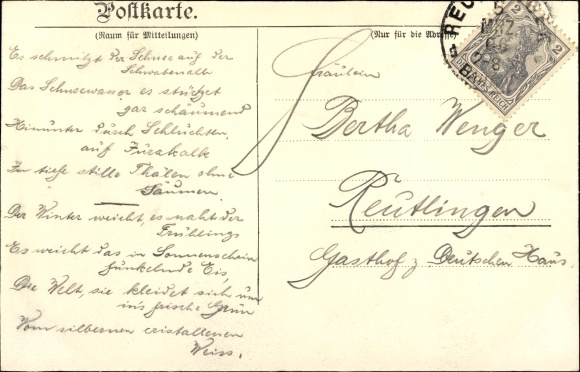 Postkarte.
(Raum für Mitteilungen)
(Nur für die Adresse)
Es schmilzt der Schnee auf der
Schwabenalb
Das Schneewasser es stürzet
gar schäumend
Hinunter durch Schluchten,
auf Jurakalk
In tiefe stille Thalen ohne
Säumen.
Der Winter weicht, es naht der
Frühlings
Es weicht das in Sonnenschein
funkelnde Eis,
Die Welt, sie kleidet sich um
in's frische Grün
Vom silbernen cristallenen
Weiss.
Fräulein
Bertha Wenger
Reutlingen
Gasthof z Deutschen Haus.
2 2
DEUTSCHES REICH